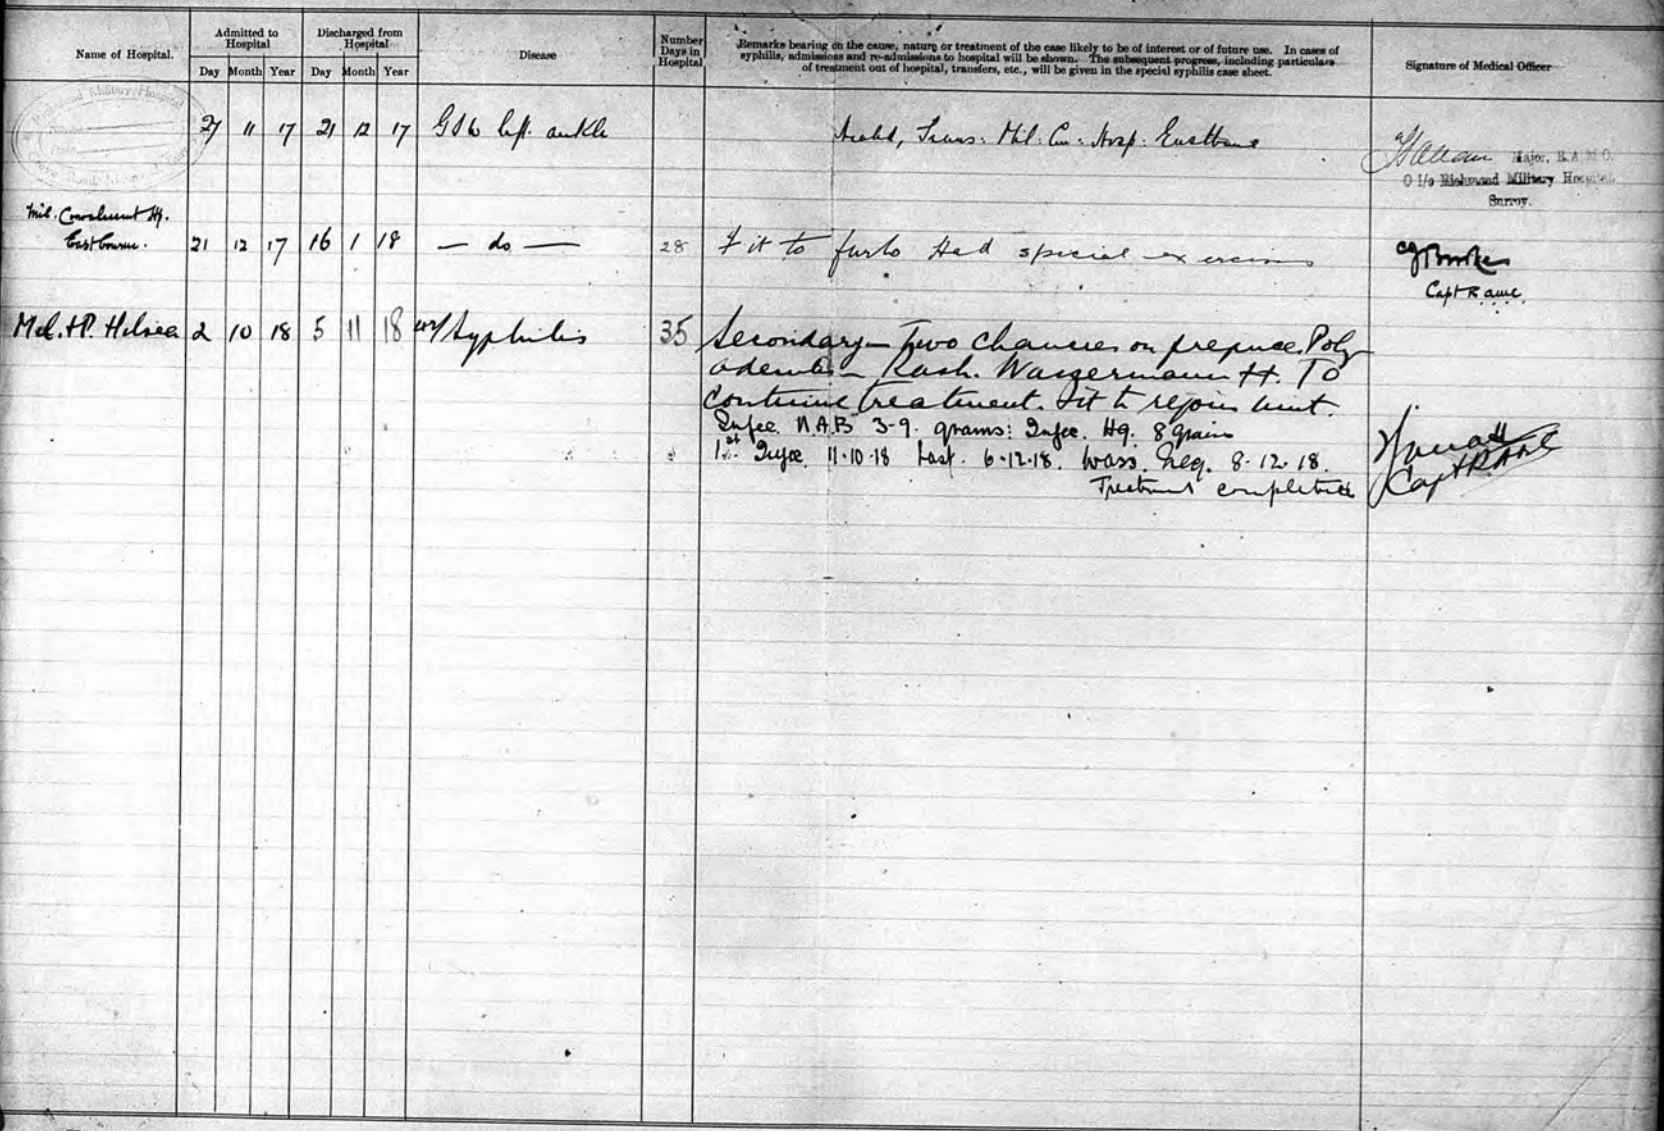 Name of Hospital.
Admitted to
Hospital
Day Month Year
Discharged from
Hospital
Day Month Year
Disease
Number
Days in
Hospital
Remarks bearing on the cause, nature or treatment of the case likely to be of interest or of future use. In cases of
syphilis, admissions and re-admissions to hospital will be shown. The subsequent progress, including particulars
of treatment out of hospital, transfers, etc., will be given in the special syphilis case sheet.
Signature of Medical Officer
Richmond Military Hospital
27 11 17 21 12 17 G S W left ankle
Trans: Mil: Con: Hosp: Eastbourne
Major, R.A.M.C.
O i/c Richmond Military Hospital,
Surrey.
Mil. Convalescent Hp.
Eastbourne.
21 12 17 16 1 18 — do — 28 Fit to furlo Had special exercises
Capt R.A.M.C.
Mil. HP. Hilsea 2 10 18 5 11 18 Syphilis 35 Secondary – Two Chancres on prepuce. Poly
adenitis – Rash. Wassermann ++. To
continue treatment. Fit to rejoin unit.
Injec. N.A.B 3-9. grams: Injec. Hg. 8 grains
1st Injec. 11·10·18 Last. 6·12·18. Wass. Neg. 8·12·18.
Treatment completed
Capt RAMC